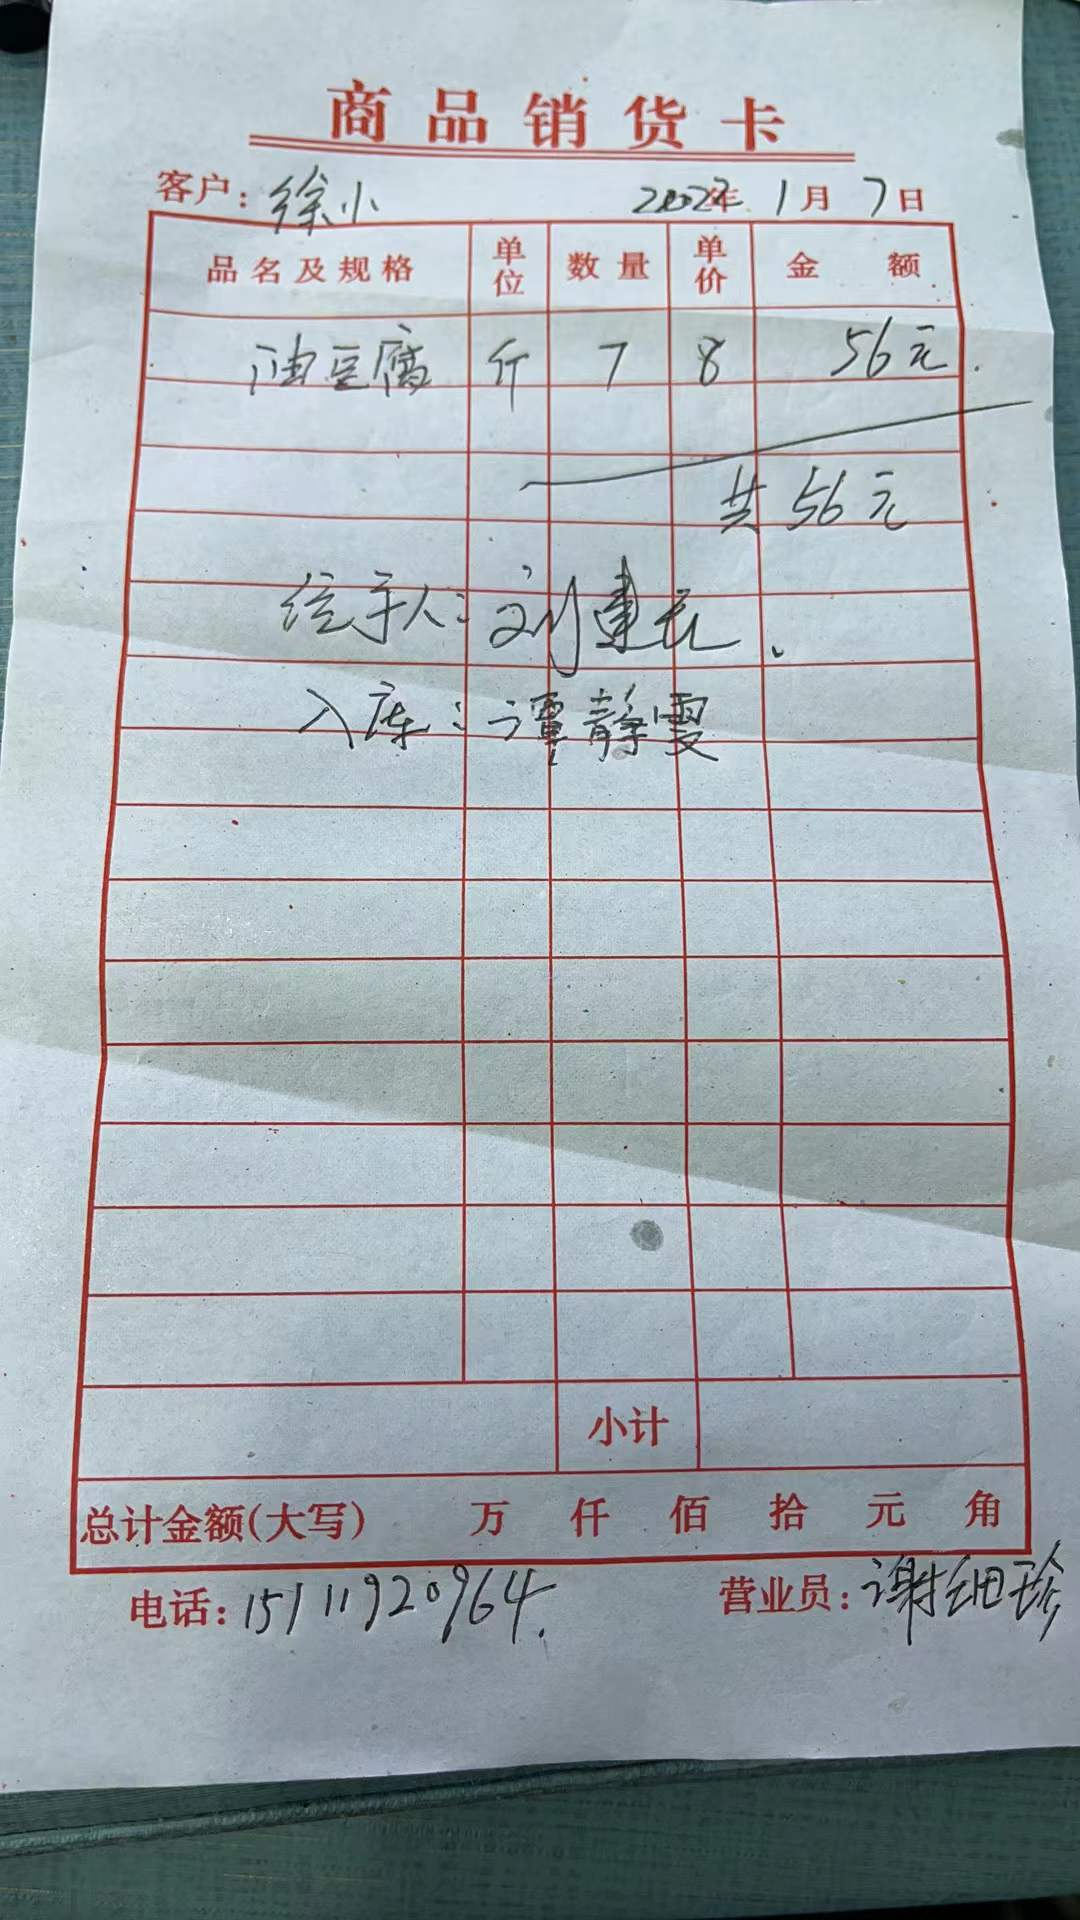 商品销货卡
客户：徐小 2022年1月7日
品名及规格 单位 数量 单价 金额
油豆腐 斤 7 8 56元
共56元
经手人：刘建云
入库：谭静雯
小计
总计金额(大写) 万 仟 佰 拾 元 角
电话：15111920964 营业员：谢细珍